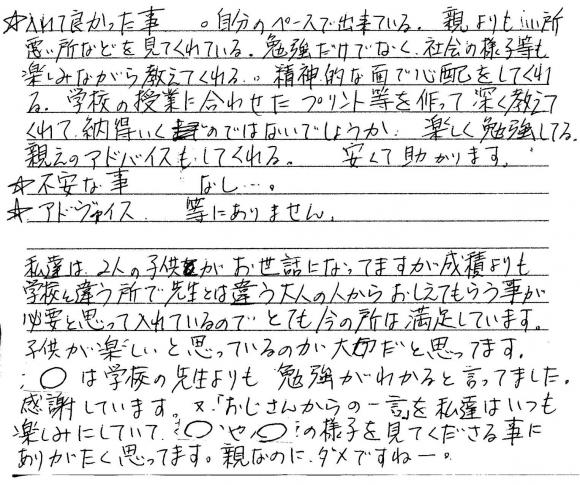 ☆入れて良かった事 。自分のペースで出来ている。親よりもいい所
悪い所などを見てくれている。勉強だけでなく、社会の様子等も
楽しみながら教えてくれる。。精神的な面で心配をしてくれ
る。学校の授業に合わせたプリント等を作って深く教えて
くれて、納得いくのではないでしょうか。楽しく勉強してる。
親えのアドバイスもしてくれる。 安くて助かります。
☆不安な事 なし…。
☆アドヴァイス 等にありません。
私達は、2人の子供がお世話になってますが成積よりも
学校と違う所で先生とは違う大人の人からおしえてもらう事が
必要と思って入れているのでとても今の所は満足しています。
子供が楽しいと思っているのが大切だと思ってます。
○は学校の先生よりも勉強がわかると言ってました。
感謝しています。又、「おじさんからの一言」を私達はいつも
楽しみにしていて、○や○の様子を見てくださる事に
ありがたく思ってます。親なのに、ダメですねー。